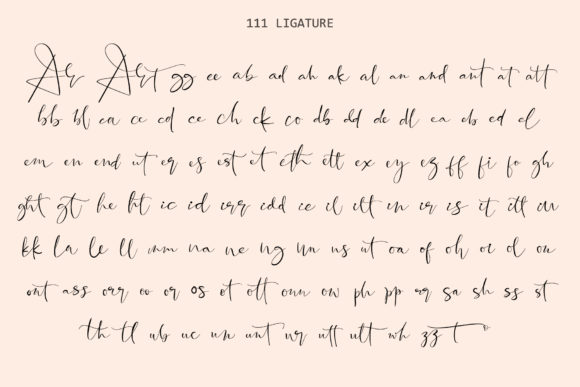 111 LIGATURE
As Ast gg ee ab ad ah ak al an and ant at att
bb bl ca cc cd ce ch ck co db dd de dl ea eb ed el
em en end ent er es est et eth ett ex ey ez ff fi fo gh
ght gt he ht ic id irr idd ie il ilt in ir is it itt
kk la le ll mm na ne ng nn ns nt oa of oh oi ol on
ont ass orr oo or os ot ott oun ow ph pp rr sa sh ss st
th tl ub uc un unt ur utt ult wh zz t